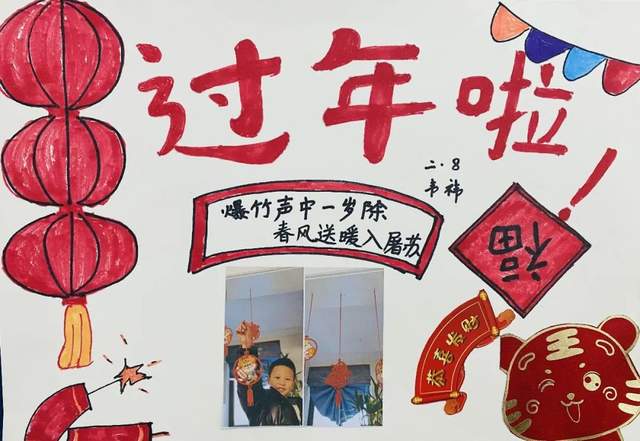 过年啦!
二·8
爆竹声中一岁除
春风送暖入屠苏
福
恭喜发财